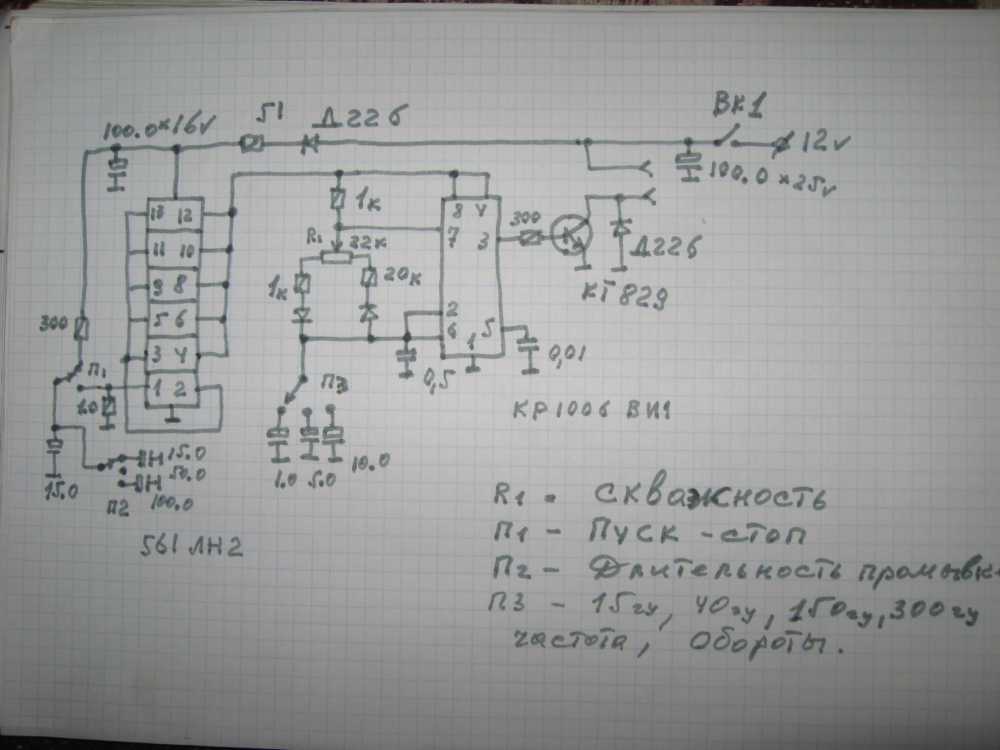 100.0×16v
51
Д226
ВК1
12v
100.0×25v
13 12
11 10
9 8
5 6
3 4
1 2
300
П1
15.0
15.0
50.0
100.0
П2
561 ЛН2
1к
R1 22к
1к
20к
8 4
7
3
2
6
5
1
300
Д226
КТ829
0,01
0,5
КР1006 ВИ1
П3
1.0 5.0 10.0
R1 - скважность
П1 - Пуск - стоп
П2 - Длительность промывк
П3 - 15гц, 40гц, 150гц, 300гц
частота, Обороты.